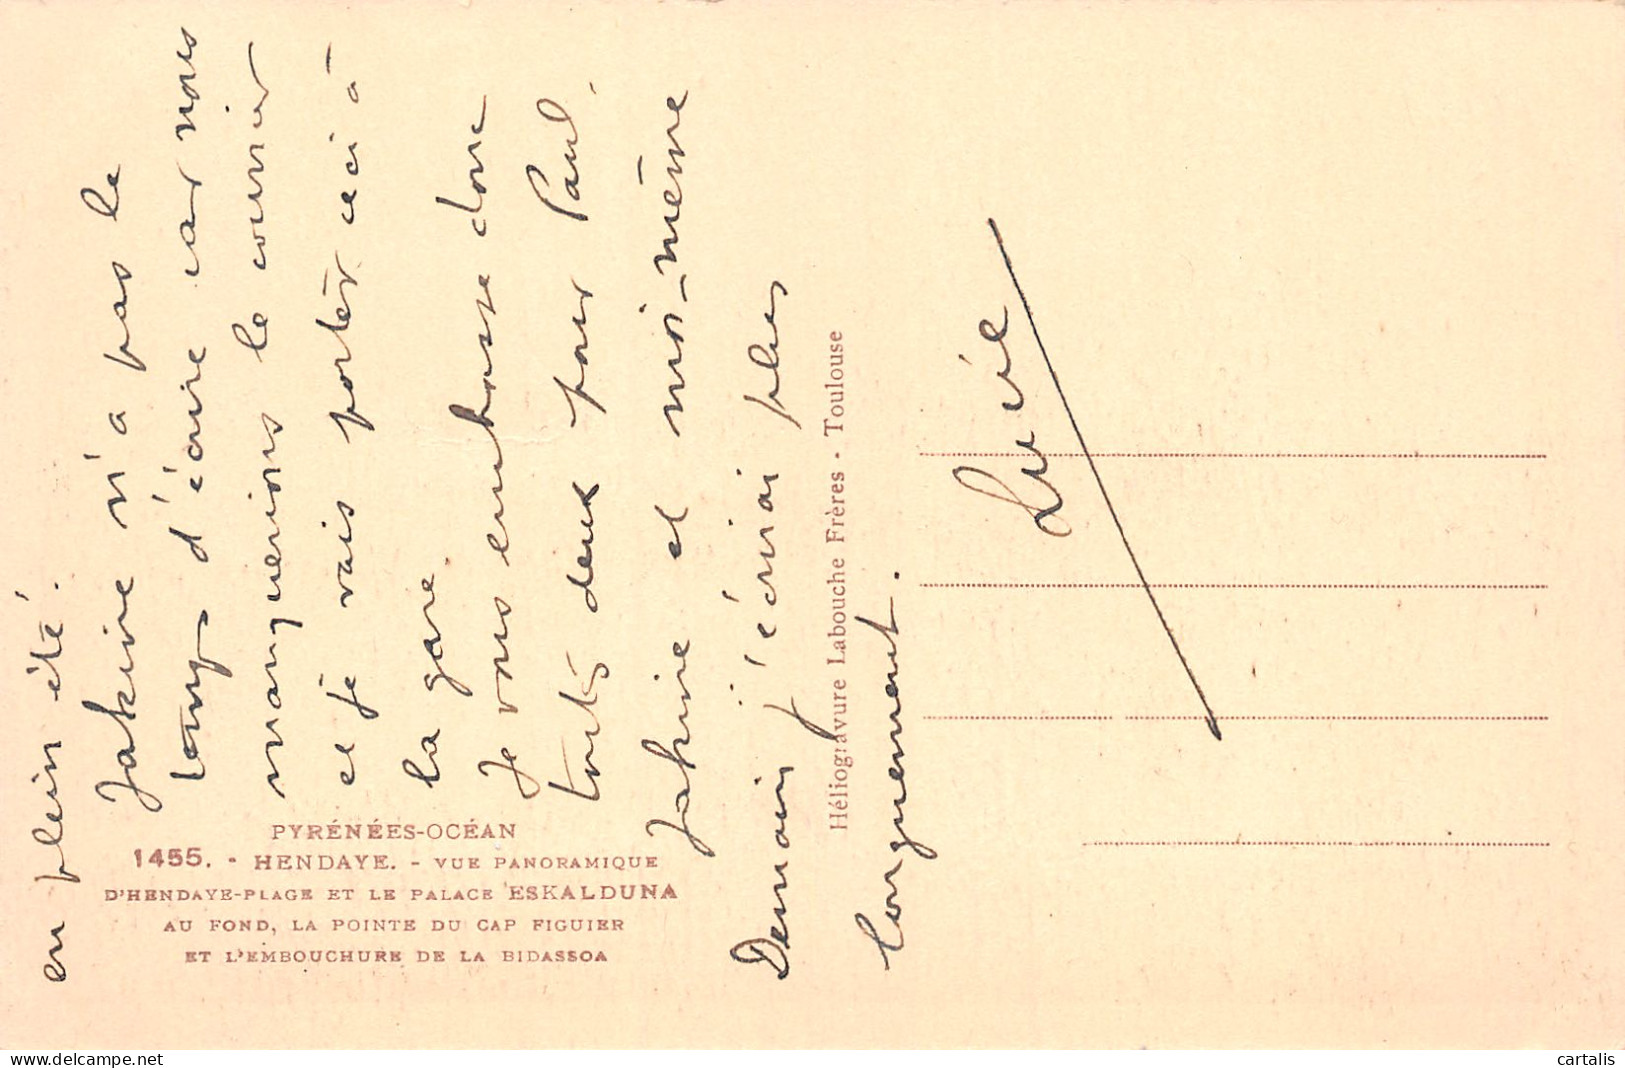 en plein été.
Jakine n'a pas le
temps d'écrire car nous
manquerions le courrier
et je vais porter ceci à
la gare.
Je vous embrasse donc
tous deux pour Paul,
Jakine et moi-même
Demain j'écrirai plus
longuement.
Lucie
PYRÉNÉES-OCÉAN
1455. - HENDAYE. - VUE PANORAMIQUE
D'HENDAYE-PLAGE ET LE PALACE ESKALDUNA
AU FOND, LA POINTE DU CAP FIGUIER
ET L'EMBOUCHURE DE LA BIDASSOA
Héliogravure Labouche Frères - Toulouse
www.delcampe.net
cartalis